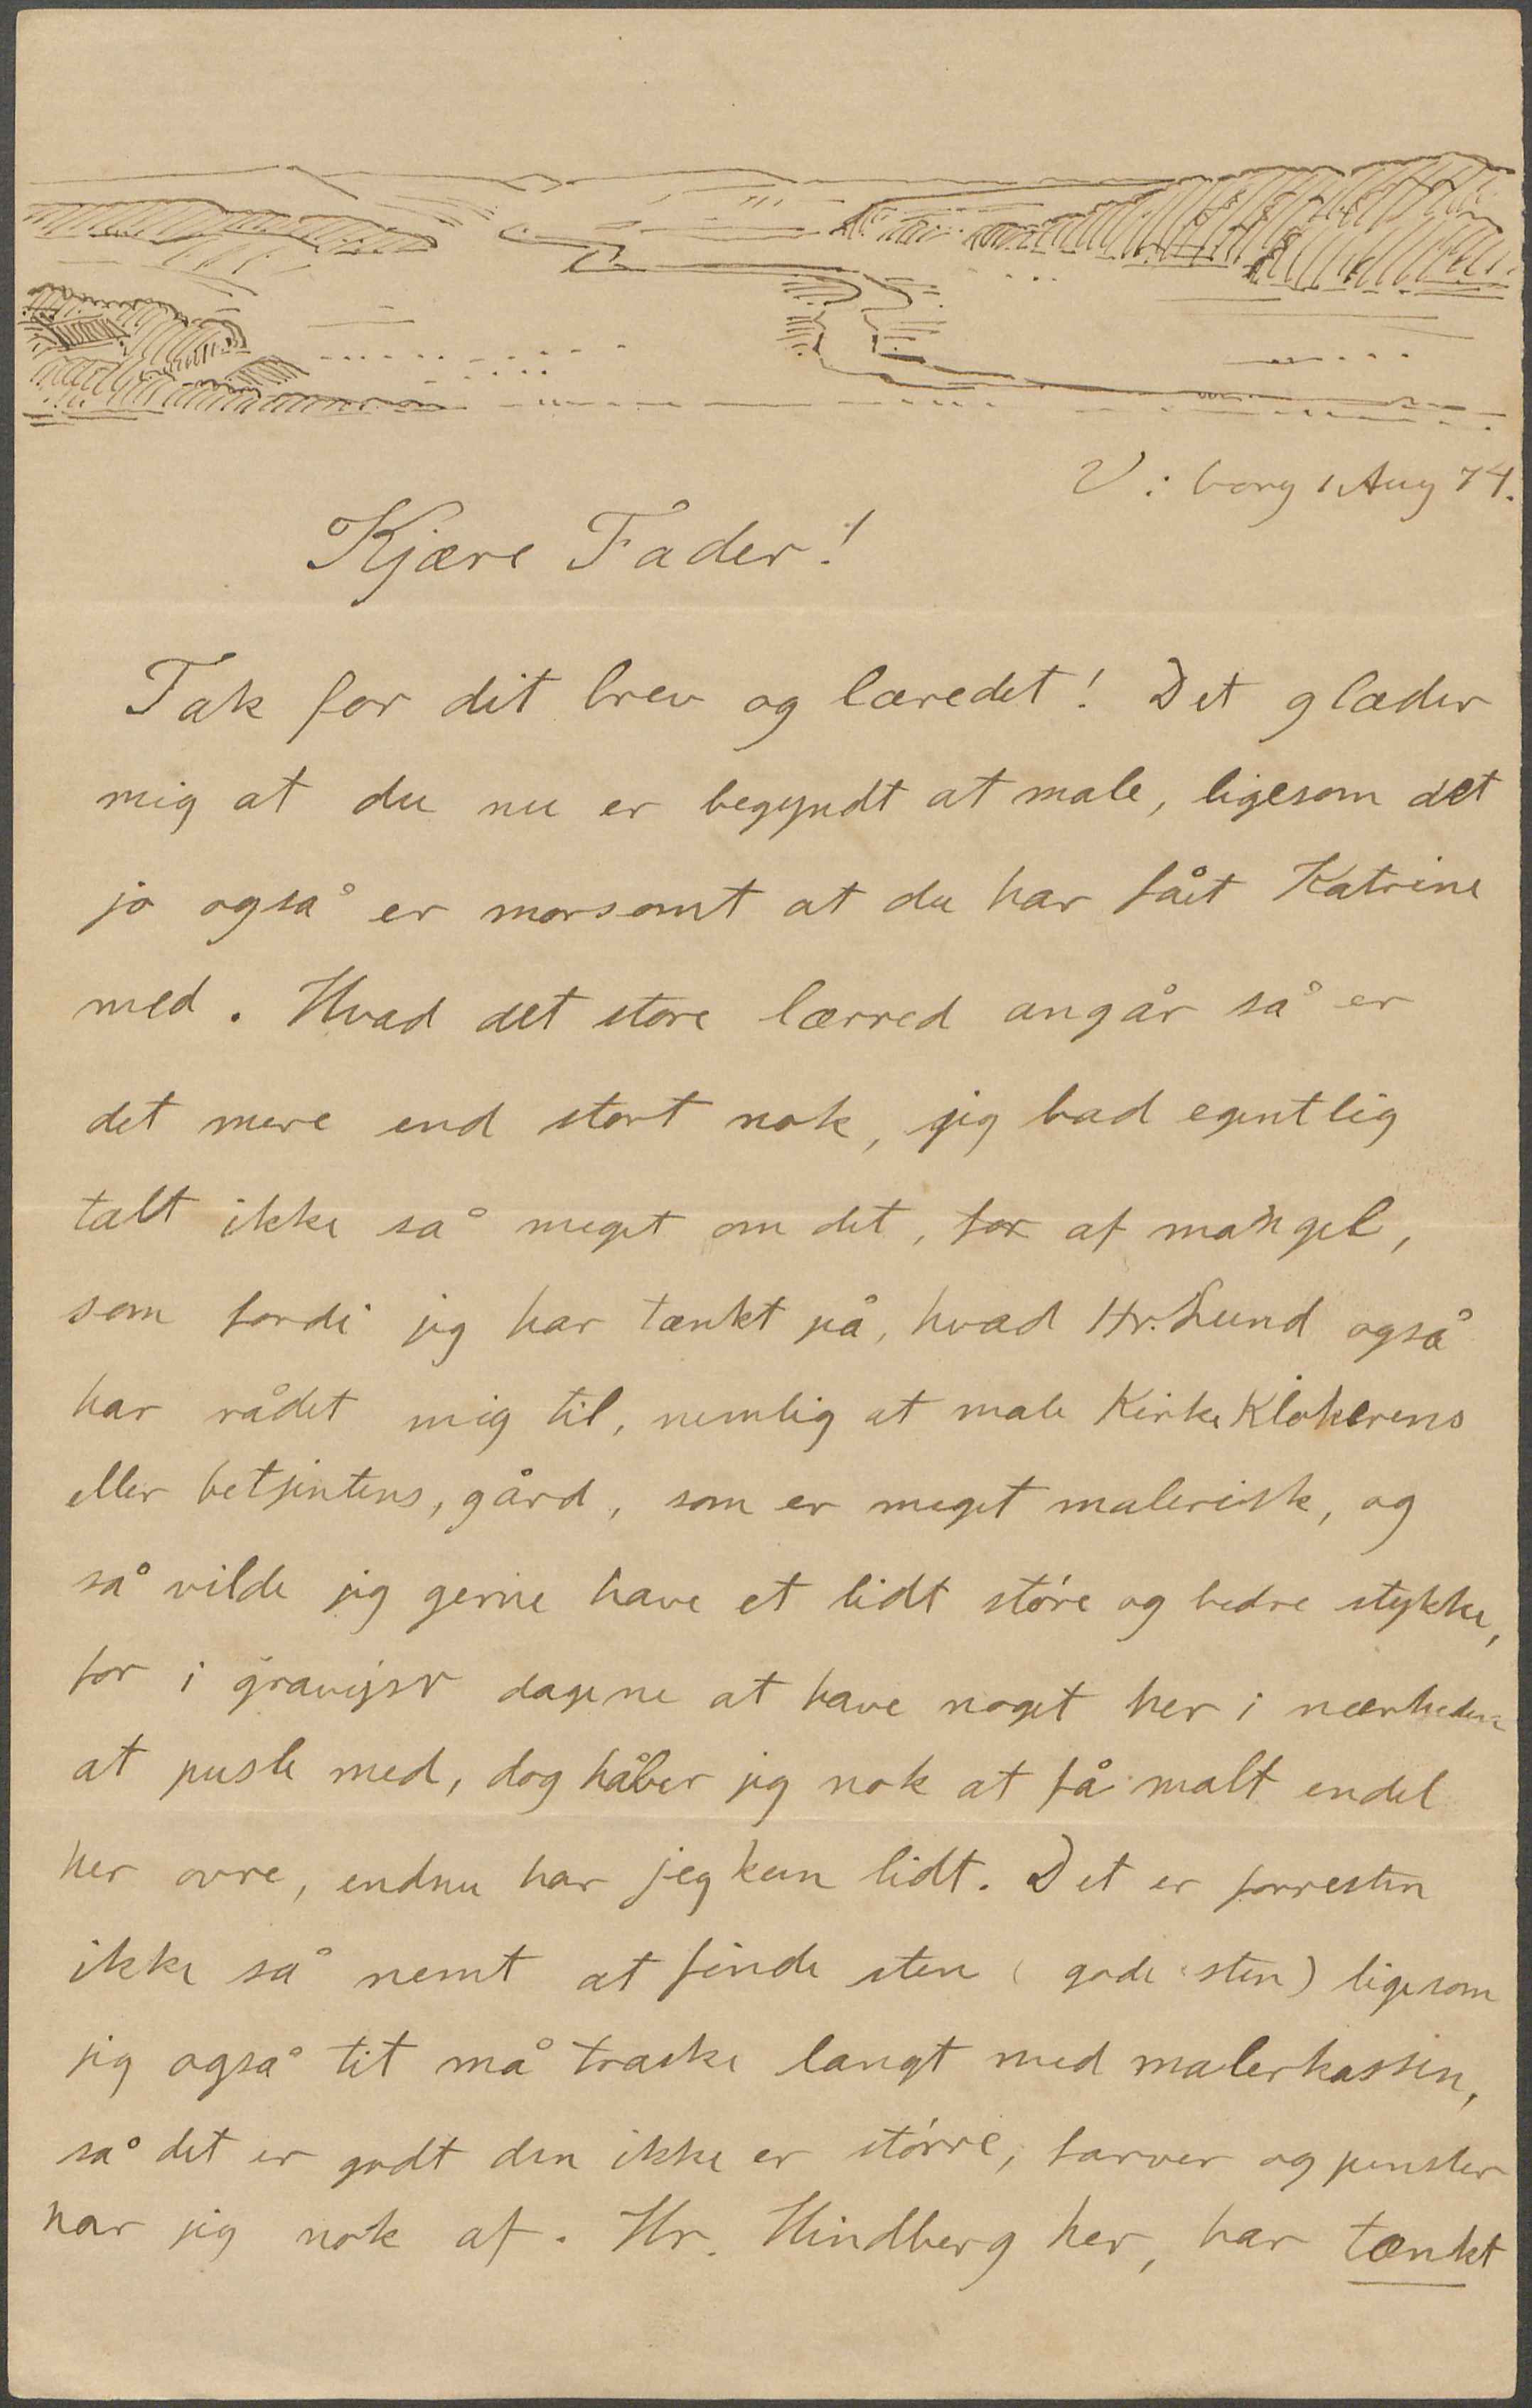 V: borg 1 Aug 74.
Kjære Fader!
Tak for dit brev og læredet! Det glæder
mig at du nu er begyndt at male, ligesom det
jo også er morsomt at du har fåit Katrine
med. Hvad det store lærred angår så er
det mere end stort nok, jig bad egentlig
talt ikke så meget om det, for af mangel,
som fordi jeg har tænkt på, hvad Hr. Lund også
har rådet mig til, nemlig at male Kirke Klokerens
eller betjentens, gård, som er meget malerisk, og
så vilde jeg gerne have et lidt støre og bedre stykke,
for i gravejsr dagene at have noget her i nærheden
at pusle med, dog håber jeg nok at få malt endel
her ovre, endnu har jeg kun lidt. Det er forresten
ikke så nemt at finde sten (gode sten) ligesom
jeg også tit må traske langt med malerkassen,
så det er godt den ikke er større, farver og pensler
har jeg nok af. Hr. Hindberg her, har tænkt